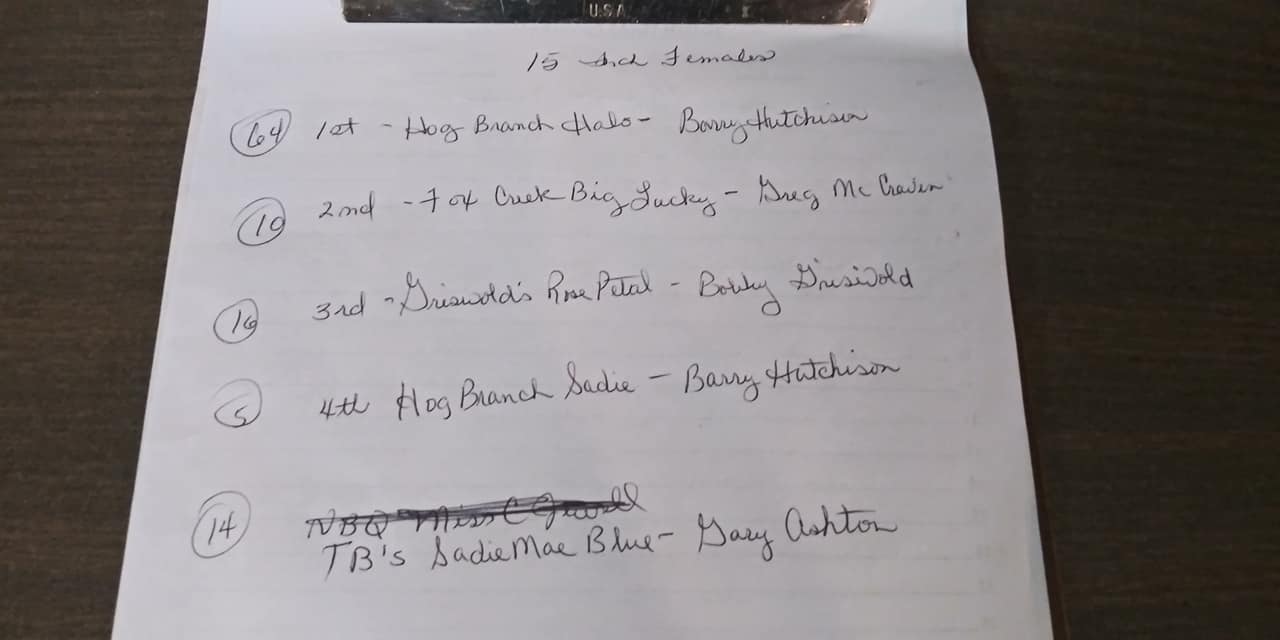 U.S.A.
15 Inch Females
64 1st - Hog Branch Halo - Barry Hutchison
10 2nd - Fox Creek Big Lucky - Greg McCraven
16 3rd - Griswold's Rose Petal - Bobby Griswold
5 4th Hog Branch Sadie - Barry Hutchison
NBQ Miss C
14 TB's Sadie Mae Blue - Gary Ashton